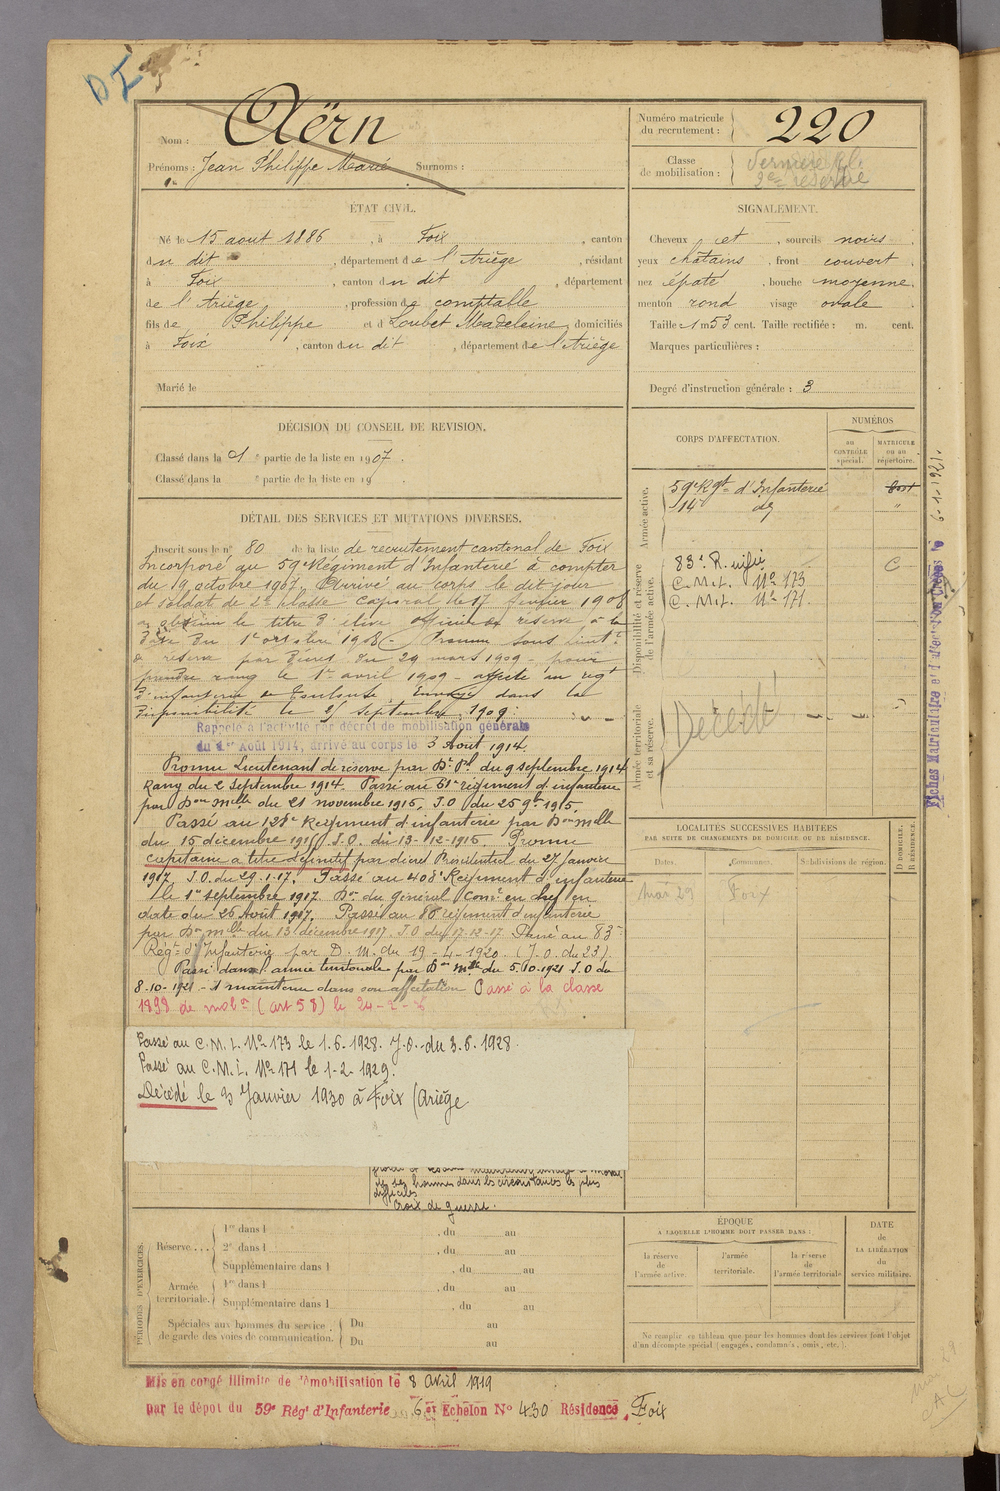 DI
Nom : Aërn
Prénoms : Jean Philippe Marie Surnoms :
Numéro matricule du recrutement : 220
Classe de mobilisation : Dernière Cl.
2e réserve
ÉTAT CIVIL.
Né le 15 aout 1886, à Foix, canton
du dit, département de l'Ariège, résidant
à Foix, canton du dit, département
de l'Ariège, profession de comptable
fils de Philippe et de Loubet Madeleine, domiciliés
à Foix, canton du dit, département de l'Ariège
Marié le
SIGNALEMENT.
Cheveux et, sourcils noirs,
yeux châtains, front couvert,
nez épaté, bouche moyenne,
menton rond visage ovale
Taille 1m 53 cent. Taille rectifiée : m. cent.
Marques particulières :
Degré d'instruction générale : 3
DÉCISION DU CONSEIL DE REVISION.
Classé dans la 1e partie de la liste en 1907.
Classé dans la e partie de la liste en 19
DÉTAIL DES SERVICES ET MUTATIONS DIVERSES.
Inscrit sous le n° 80 de la liste de recrutement cantonal de Foix
Incorporé au 59e Régiment d'Infanterie à compter
du 9 octobre 1907. Arrivé au corps le dit jour
et soldat de 2e classe caporal le 17 février 1908
a obtenu le titre d'élève officier de réserve à la
date du 1er octobre 1908 - Promu sous lieutt
de réserve par décret du 29 mars 1909 - pour
prendre rang le 1er avril 1909 - affecté au régt
d'infanterie de Toulouse Envoyé dans la
disponibilité le 25 septembre 1909 :
Rappelé à l'activité par décret de mobilisation générale
du 1er Août 1914, arrivé au corps le 3 Août 1914.
Promu Lieutenant de réserve par Dt Pl du 9 septembre 1914
Rang du 2 septembre 1914. Passé au 51e régiment d'infanterie
par Don Melle du 21 novembre 1915. J.O du 25 9bre 1915.
Passé au 128e Régiment d'infanterie par Don Melle
du 15 décembre 1915 J.O. du 13-12-1915. Promu
capitaine à titre définitif par décret Présidentiel du 27 Janvier
1917. J.O. du 29.1.17. Passé au 408e Régiment d'infanterie
le 1er septembre 1917. Don du Général Comt en chef en
date du 26 Août 1917. Passé au régiment d'infanterie
par Don Melle du 13 décembre 1917. J.O du 17-12-17. Passé au 83e
Régt d'Infanterie par D.M. du 19-4-1920 (J.O. du 23).
Passé dans armée territoriale par Don Mlle du 5.10.1921 J.O du
8-10-1921. maintenu dans son affectation Passé à la classe
1899 de mobon (art 58) le 24
Passé au C.M.I. No 173 le 1.6.1928. J.O. du 3.6.1928.
Passé au C.M.I. No 171 le 1-2-1929.
Décédé le 3 Janvier 1930 à Foix (Ariège
de ses hommes dans les circonstances les plus
difficiles
Croix de guerre.
CORPS D'AFFECTATION.
NUMÉROS
au CONTRÔLE spécial.
MATRICULE ou au répertoire.
Armée active.
59e Rgt d'Infanterie
14e dg
Disponibilité et réserve de l'armée active.
83e R. infie C
C.M.I. No 173
C.M.I. No 171.
Armée territoriale et sa réserve.
Décédé
LOCALITÉS SUCCESSIVES HABITÉES
PAR SUITE DE CHANGEMENTS DE DOMICILE OU DE RÉSIDENCE.
Dates. Communes. Subdivisions de région. D DOMICILE. R RÉSIDENCE.
mai 29 Foix
Fiches Matriculaire et d'affectation Créées le 6-1-1921.
PÉRIODES D'EXERCICES.
Réserve.... 1re dans l , du au
2e dans l , du au
Supplémentaire dans l , du au
Armée territoriale. 1re dans l , du au
Supplémentaire dans l , du au
Spéciales aux hommes du service de garde des voies de communication. Du au
Du au
ÉPOQUE
A LAQUELLE L'HOMME DOIT PASSER DANS :
la réserve de l'armée active.
l'armée territoriale.
la réserve de l'armée territoriale
DATE DE LA LIBÉRATION du service militaire.
Ne remplir ce tableau que pour les hommes dont les services font l'objet
d'un décompte spécial (engagés, condamnés, omis, etc.).
Mis en congé illimité de démobilisation le 8 Avril 1919
par le dépot du 59e Régt d'Infanterie 6e Echelon No 430 Résidence, Foix
mai 29
CAC